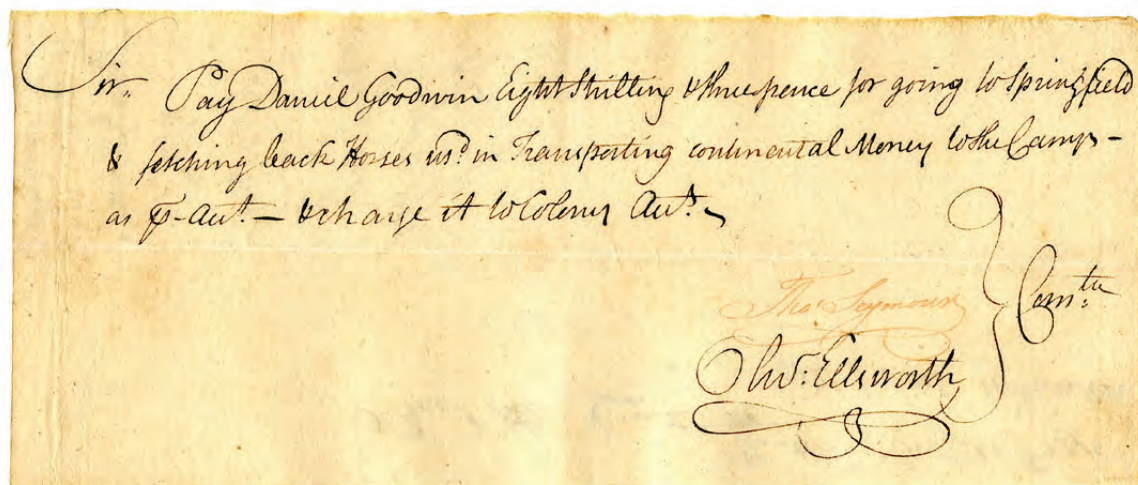 Sir. Pay Daniel Goodwin Eight Shilling & three pence for going to Springfield
& fetching back Horses usd. in Transporting continental Money to the Camp -
as ⅌ - Acct. - & charge it to Colony Acct.
Thos. Seymour
Olivr. Ellsworth
Comtee